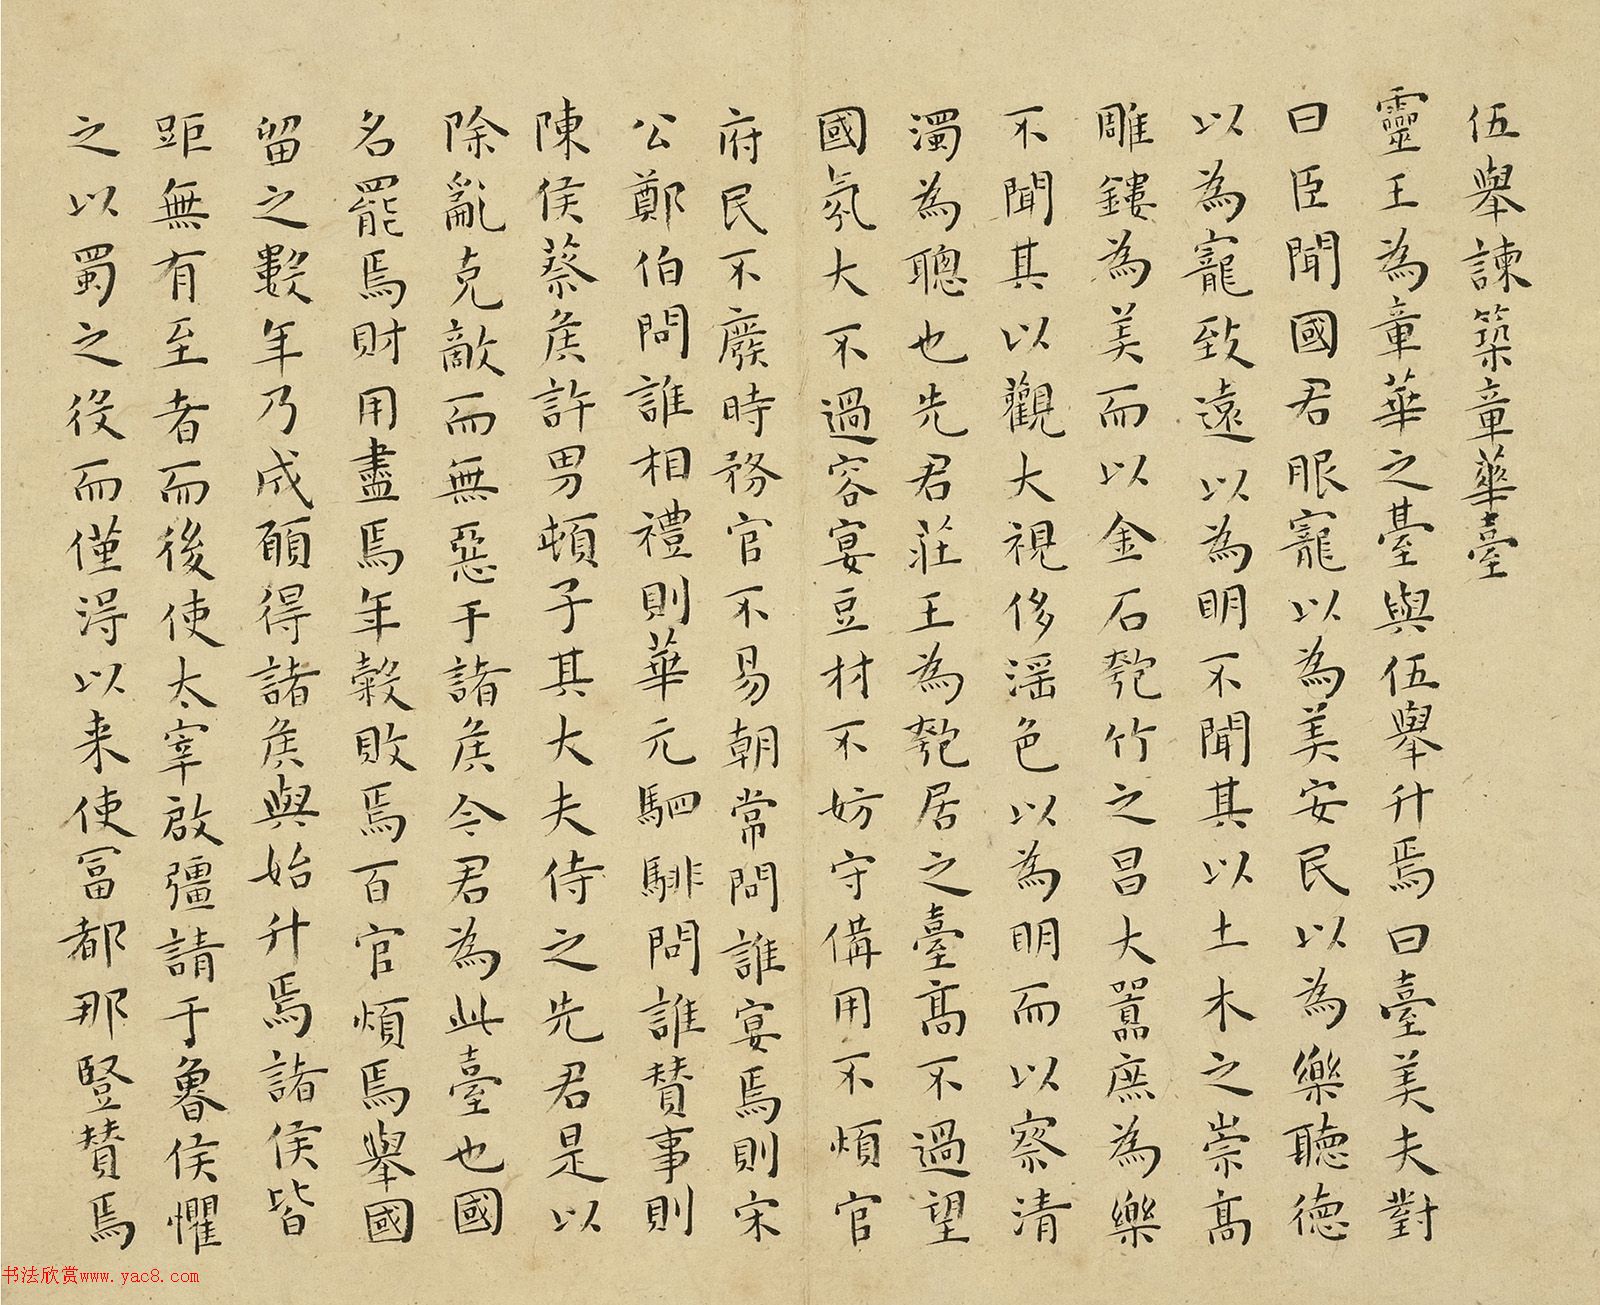 伍舉諫築章華臺
靈王為章華之臺與伍舉升焉曰臺美夫對
曰臣聞國君服寵以為美安民以為樂聽徳
以為寵致遠以為眀不聞其以土木之崇髙
雕鏤為美而以金石匏竹之昌大囂庶為樂
不聞其以觀大視侈滛色以為眀而以察清
濁為聰也先君莊王為匏居之臺髙不過望
國氛大不過容宴豆材不妨守備用不煩官
府民不廢時務官不易朝常問誰宴焉則宋
公鄭伯問誰相禮則華元駟騑問誰贊事則
陳侯蔡侯許男頓子其大夫侍之先君是以
除亂克敵而無惡于諸侯今君為此臺也國
名罷焉財用盡焉年穀敗焉百官煩焉舉國
留之數年乃成願得諸侯與始升焉諸侯皆
距無有至者而後使太宰啟彊請于魯侯懼
之以蜀之役而僅得以来使冨都那豎贊焉
书法欣赏www.yac8.com